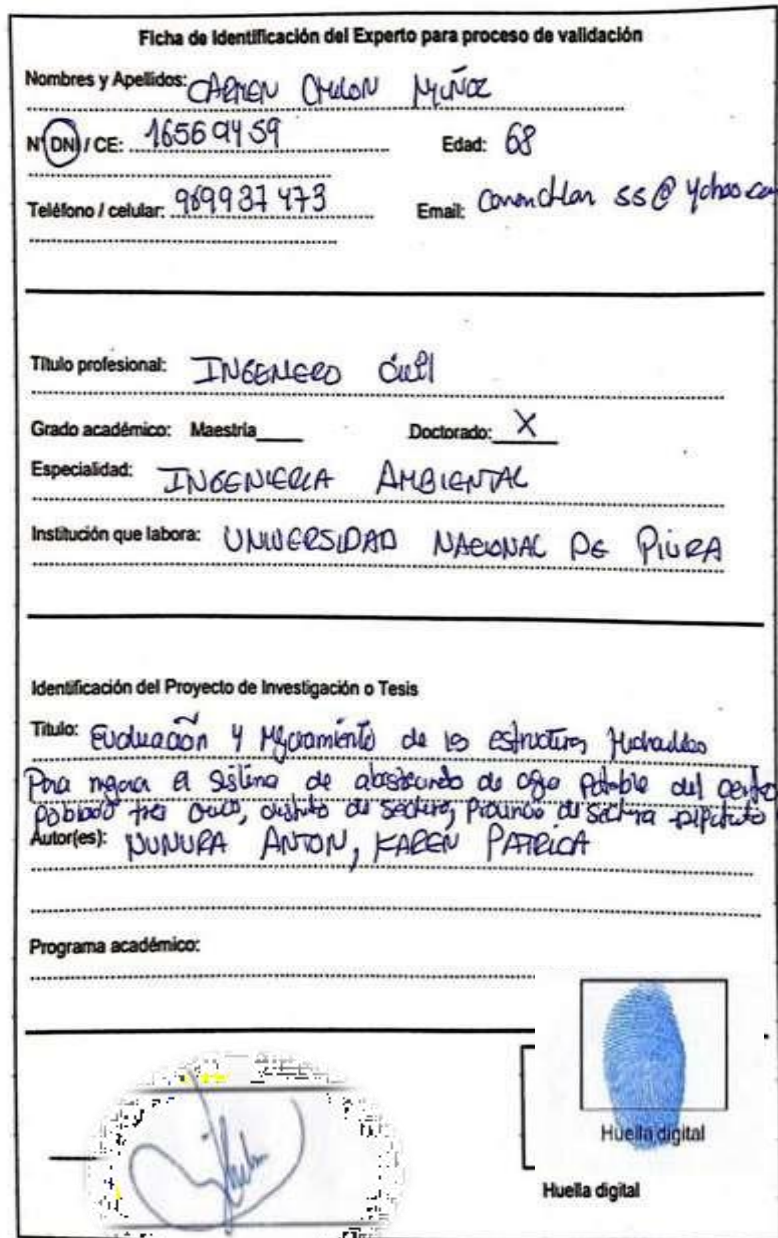 Ficha de Identificación del Experto para proceso de validación
Nombres y Apellidos: CARMEN CHILON MUÑOZ
N° DNI / CE: 16569459 Edad: 68
Teléfono / celular: 989937473 Email: @ yahoo.com
Título profesional: INGENIERO Civil
Grado académico: Maestría____ Doctorado: X
Especialidad: INGENIERIA AMBIENTAL
Institución que labora: UNIVERSIDAD NACIONAL DE PIURA
Identificación del Proyecto de Investigación o Tesis
Título: Evaluación y Mejoramiento de las estructuras Hidraulicas
Para mejorar el Sistema de abastecimiento de agua Potable del centro
poblado tres, distrito de Sechura, Provincia de Sechura
Autor(es): NUNURA ANTON, KAREN PATRICIA
Programa académico:
Huella digital
Huella digital